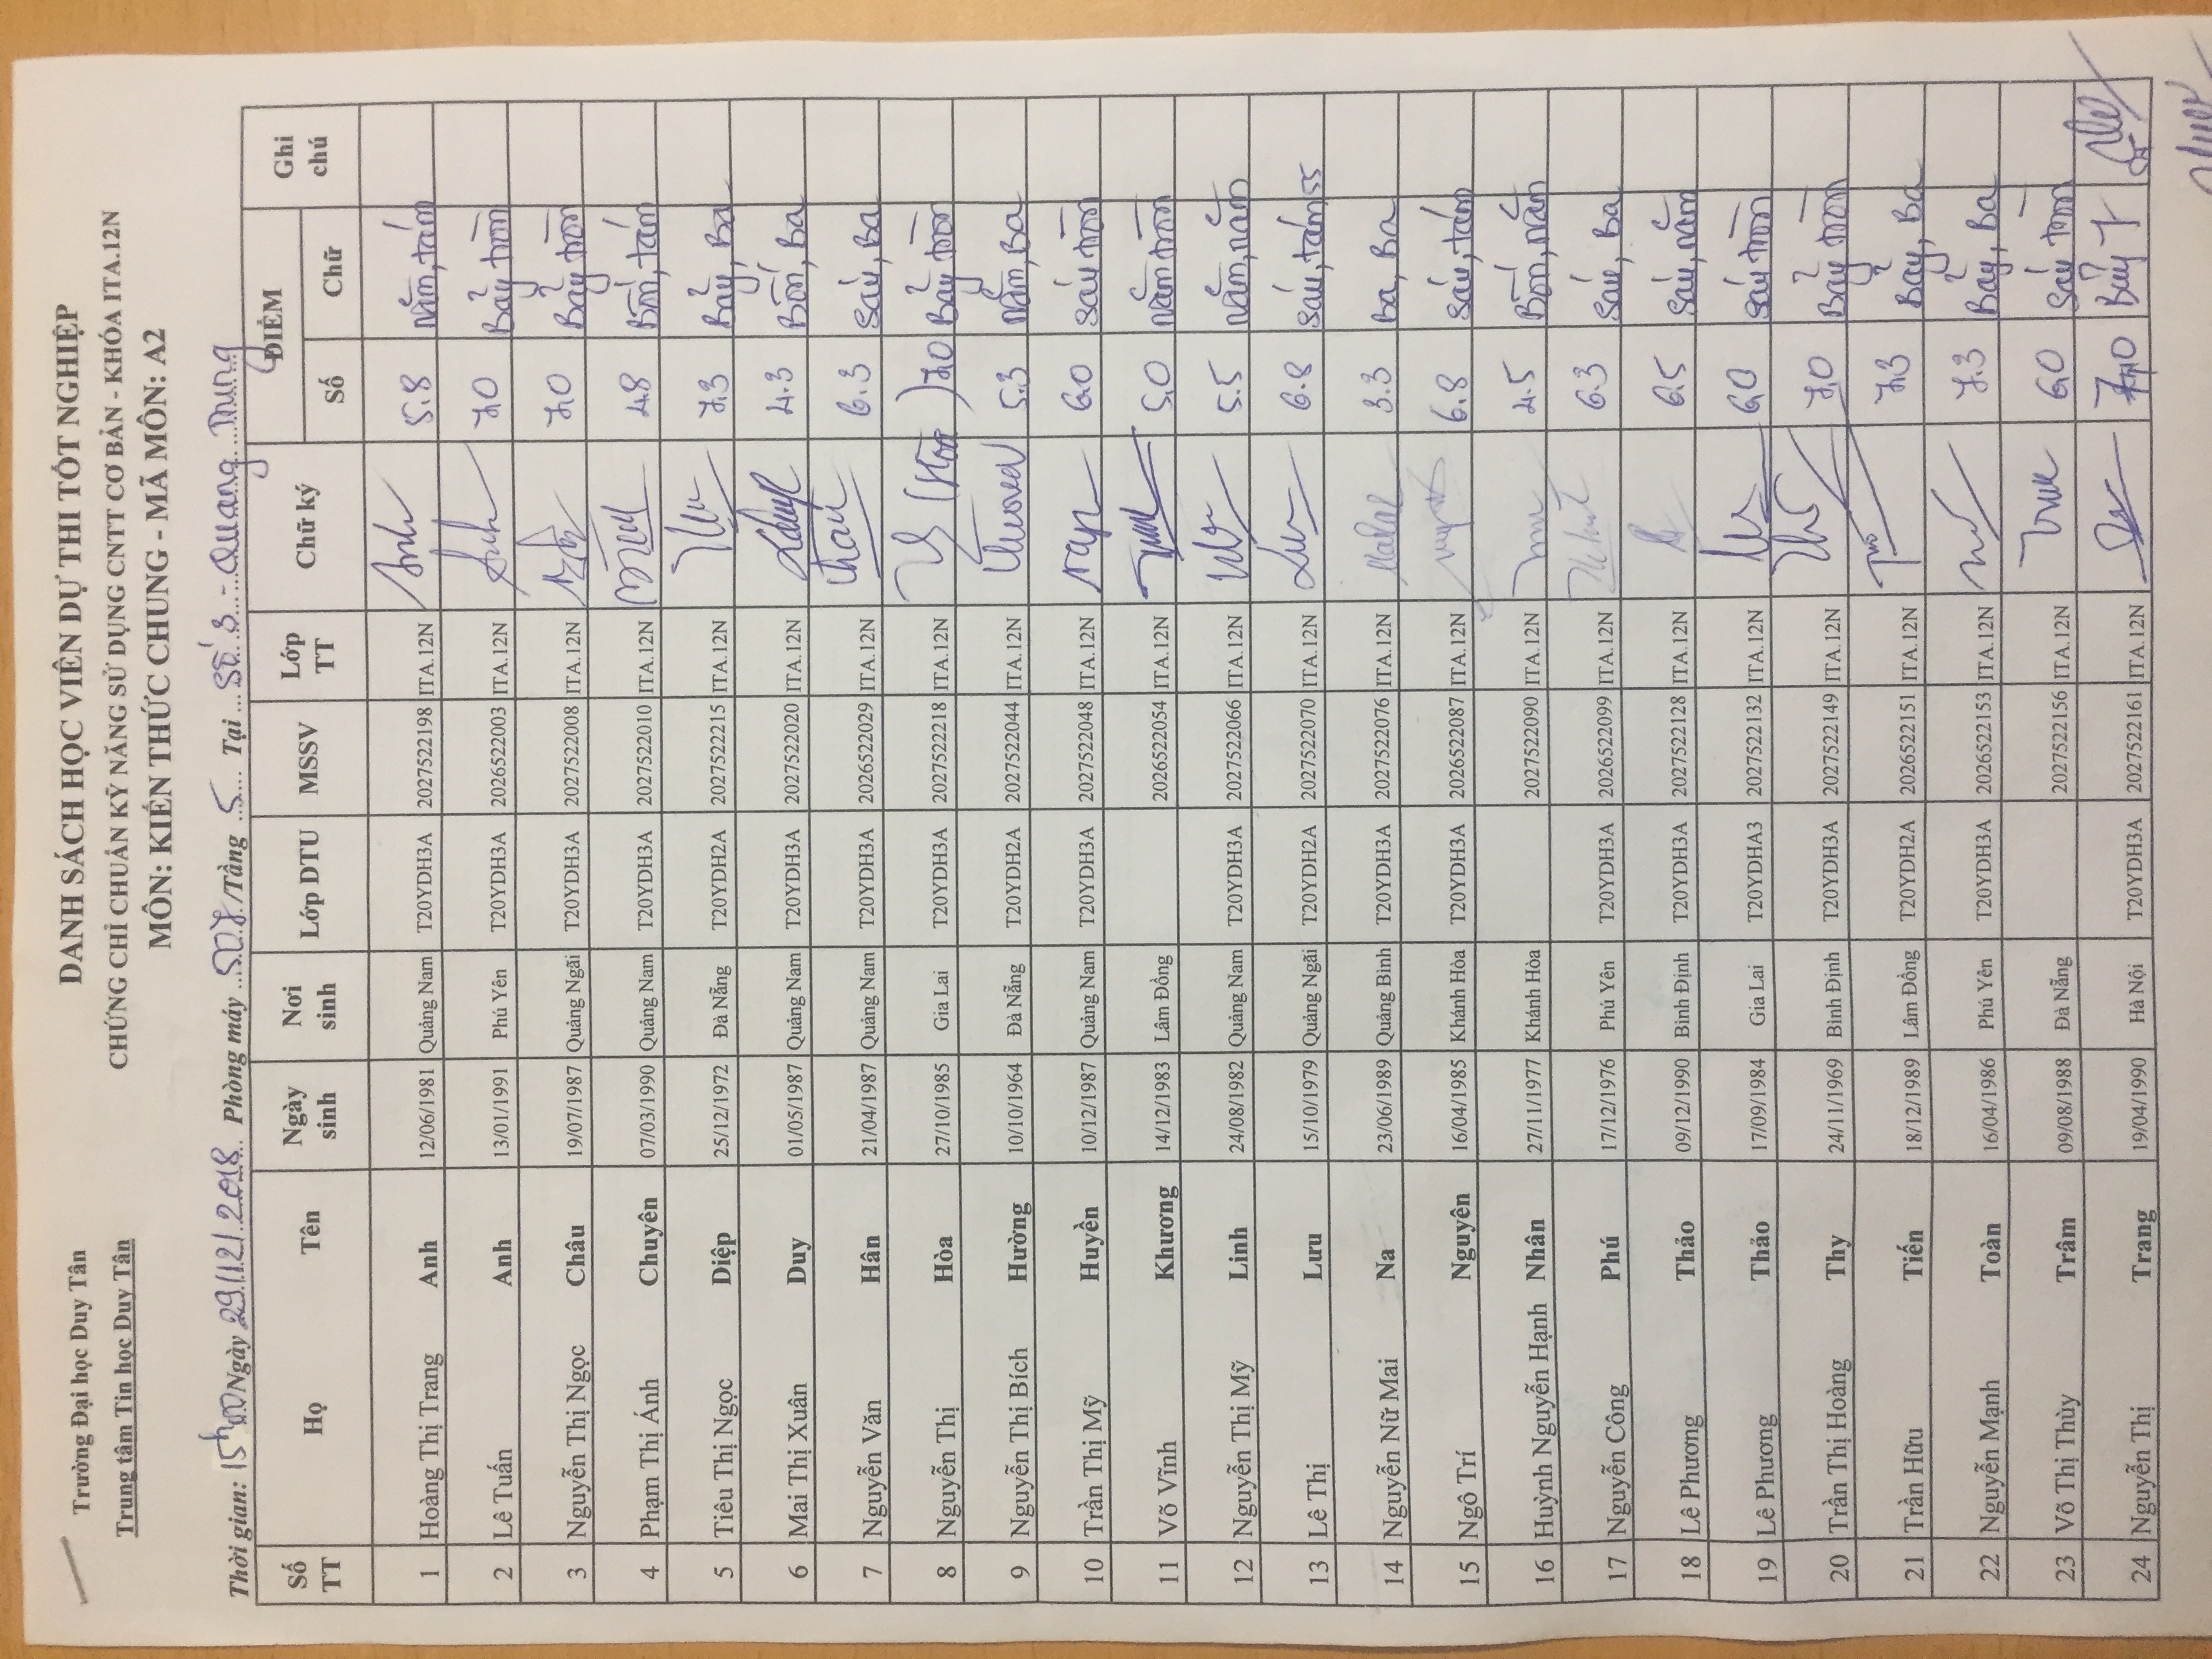 Trường Đại học Duy Tân
Trung tâm Tin học Duy Tân
DANH SÁCH HỌC VIÊN DỰ THI TỐT NGHIỆP
CHỨNG CHỈ CHUẨN KỸ NĂNG SỬ DỤNG CNTT CƠ BẢN - KHÓA ITA.12N
MÔN: KIẾN THỨC CHUNG - MÃ MÔN: A2
Thời gian: 15h00 Ngày 29/12/2018 Phòng máy 507/Tầng 5 Tại Số 3 - Quang Trung
Số TT Họ Tên Ngày sinh Nơi sinh Lớp DTU MSSV Lớp TT Chữ ký ĐIỂM Số Chữ Ghi chú
1 Hoàng Thị Trang Anh 12/06/1981 Quảng Nam T20YDH3A 2027522198 ITA.12N 5.8 Năm, tám
2 Lê Tuấn Anh 13/01/1991 Phú Yên T20YDH3A 2026522003 ITA.12N 7.0 Bảy tròn
3 Nguyễn Thị Ngọc Châu 19/07/1987 Quảng Ngãi T20YDH3A 2027522008 ITA.12N 7.0 Bảy tròn
4 Phạm Thị Ánh Chuyên 07/03/1990 Quảng Nam T20YDH3A 2027522010 ITA.12N 4.8 Bốn, tám
5 Tiêu Thị Ngọc Diệp 25/12/1972 Đà Nẵng T20YDH2A 2027522215 ITA.12N 7.3 Bảy, Ba
6 Mai Thị Xuân Duy 01/05/1987 Quảng Nam T20YDH3A 2027522020 ITA.12N 4.3 Bốn, Ba
7 Nguyễn Văn Hân 21/04/1987 Quảng Nam T20YDH3A 2026522029 ITA.12N 6.3 Sáu, Ba
8 Nguyễn Thị Hòa 27/10/1985 Gia Lai T20YDH3A 2027522218 ITA.12N 7.0 Bảy tròn
9 Nguyễn Thị Bích Hường 10/10/1964 Đà Nẵng T20YDH2A 2027522044 ITA.12N 5.3 Năm, Ba
10 Trần Thị Mỹ Huyền 10/12/1987 Quảng Nam T20YDH3A 2027522048 ITA.12N 6.0 Sáu tròn
11 Võ Vĩnh Khương 14/12/1983 Lâm Đồng 2026522054 ITA.12N 5.0 Năm tròn
12 Nguyễn Thị Mỹ Linh 24/08/1982 Quảng Nam T20YDH3A 2027522066 ITA.12N 5.5 Năm, năm
13 Lê Thị Lưu 15/10/1979 Quảng Ngãi T20YDH2A 2027522070 ITA.12N 6.8 Sáu, tám
14 Nguyễn Nữ Mai Na 23/06/1989 Quảng Bình T20YDH3A 2027522076 ITA.12N 3.3 Ba, Ba
15 Ngô Trí Nguyên 16/04/1985 Khánh Hòa T20YDH3A 2026522087 ITA.12N 6.8 Sáu, tám
16 Huỳnh Nguyễn Hạnh Nhân 27/11/1977 Khánh Hòa 2027522090 ITA.12N 4.5 Bốn, năm
17 Nguyễn Công Phú 17/12/1976 Phú Yên T20YDH3A 2026522099 ITA.12N 6.3 Sáu, Ba
18 Lê Phương Thảo 09/12/1990 Bình Định T20YDH3A 2027522128 ITA.12N 6.5 Sáu, năm
19 Lê Phương Thảo 17/09/1984 Gia Lai T20YDHA3 2027522132 ITA.12N 6.0 Sáu tròn
20 Trần Thị Hoàng Thy 24/11/1969 Bình Định T20YDH3A 2027522149 ITA.12N 7.0 Bảy tròn
21 Trần Hữu Tiến 18/12/1989 Lâm Đồng T20YDH2A 2026522151 ITA.12N 7.3 Bảy, Ba
22 Nguyễn Mạnh Toàn 16/04/1986 Phú Yên T20YDH3A 2026522153 ITA.12N 7.3 Bảy, Ba
23 Võ Thị Thùy Trâm 09/08/1988 Đà Nẵng 2027522156 ITA.12N 6.0 Sáu tròn
24 Nguyễn Thị Trang 19/04/1990 Hà Nội T20YDH3A 2027522161 ITA.12N Bảy